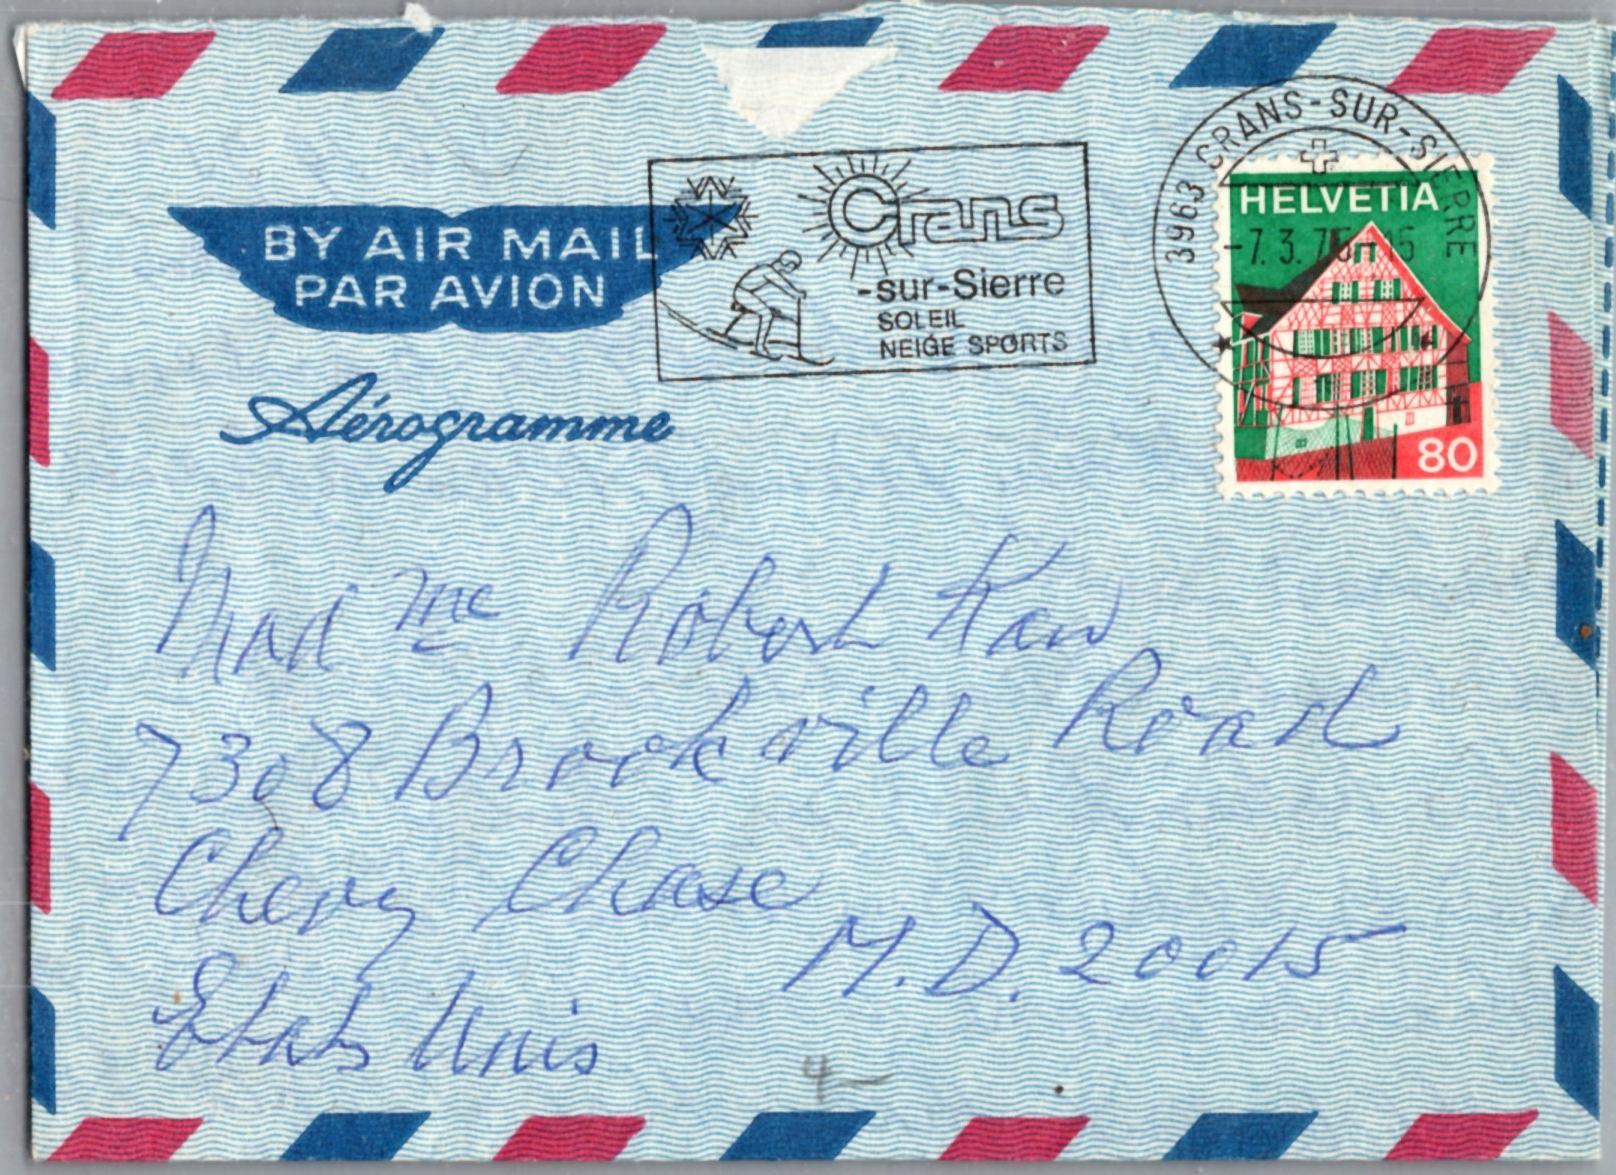 3963 CRANS-SUR-SIERRE
HELVETIA
-7. 3. 75-15
80
Crans
-sur-Sierre
SOLEIL
NEIGE SPORTS
BY AIR MAIL
PAR AVION
Aérogramme
Mad me Robert Kaw
7308 Brookville Road
Chevy Chase
M.D. 20015
Etats Unis
4-